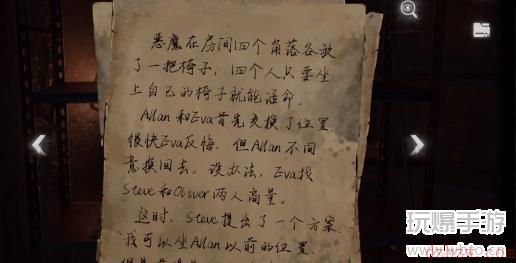 恶魔在房间四个角落各放
了一把椅子，四个人只要坐
上自己的椅子就能活命。
Allan和Eva首先交换了位置，
很快Eva反悔，但Allan不同
意换回去。没办法，Eva找
Steve和Oliver两人商量。
这时，Steve提出了一个方案：
"我可以坐Allan以前的位置
玩爆手游